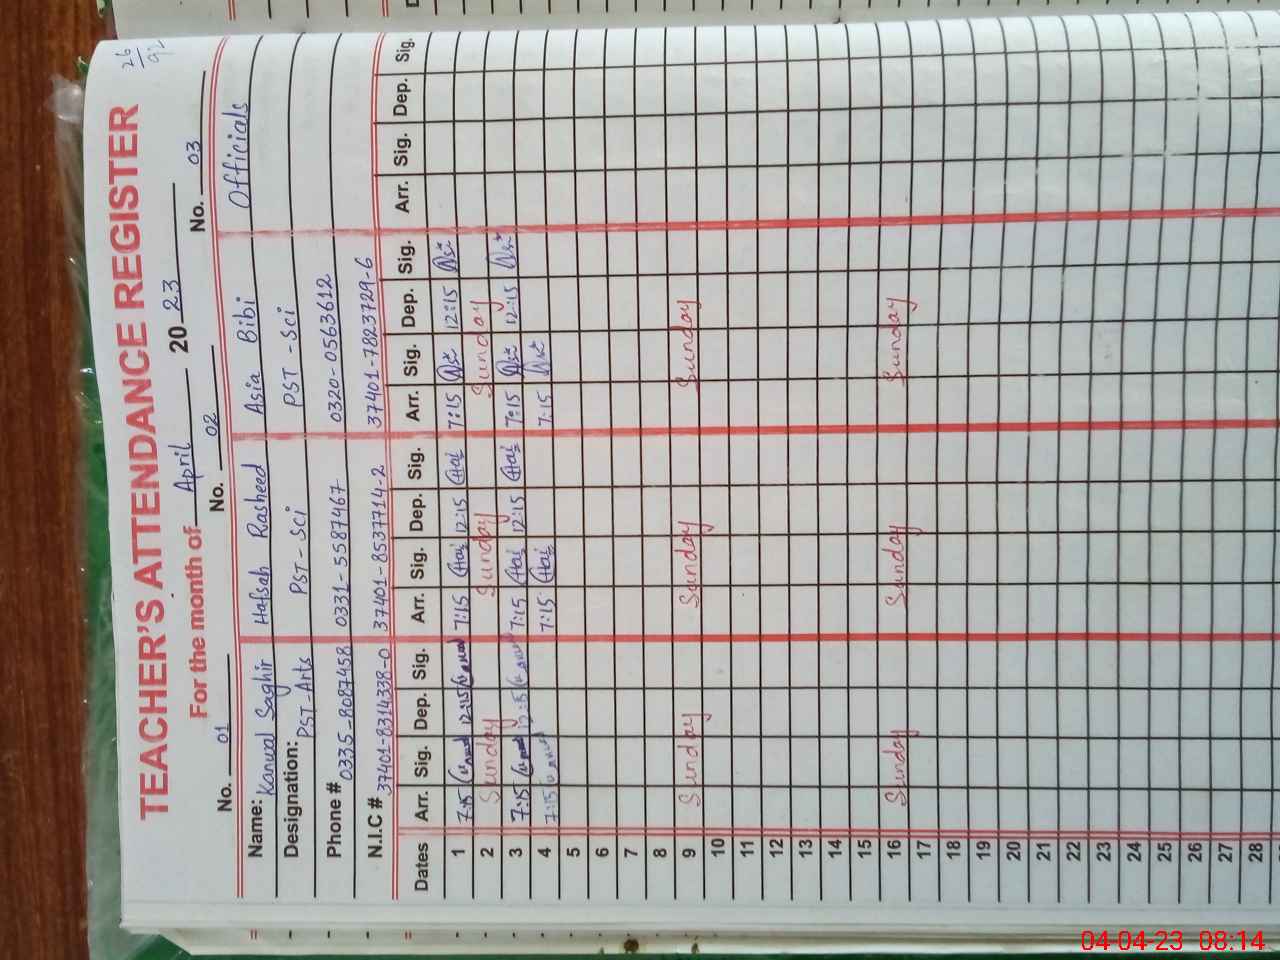 26/92
TEACHER'S ATTENDANCE REGISTER
For the month of April 2023
No. 01 No. 02 No. 03
Name: Kanwal Saghir Hafsah Rasheed Asia Bibi Officials
Designation: PST-Arts PST-Sci PST-Sci
Phone # 0335-8087458 0331-5587467 0320-0563612
N.I.C # 37401-8314338-0 37401-8537714-2 37401-7823729-6
Dates Arr. Sig. Dep. Sig. Arr. Sig. Dep. Sig. Arr. Sig. Dep. Sig. Arr. Sig. Dep. Sig.
1 7:15 12:15 7:15 12:15 7:15 12:15
2 Sunday Sunday Sunday
3 7:15 12:15 7:15 12:15 7:15 12:15
4 7:15 7:15 7:15
5
6
7
8
9 Sunday Sunday Sunday
10
11
12
13
14
15
16 Sunday Sunday Sunday
17
18
19
20
21
22
23
24
25
26
27
28
04-04-23 08:14